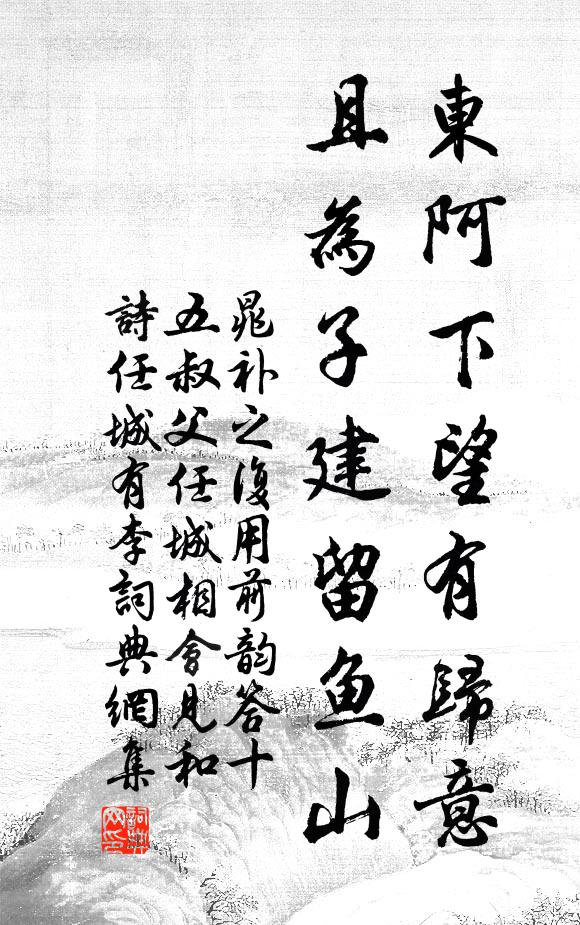 東阿下望有歸意
且為子建留魚山
晁补之復用前韵答十
五叔父任城相會見和
詩任城有李詞典網集